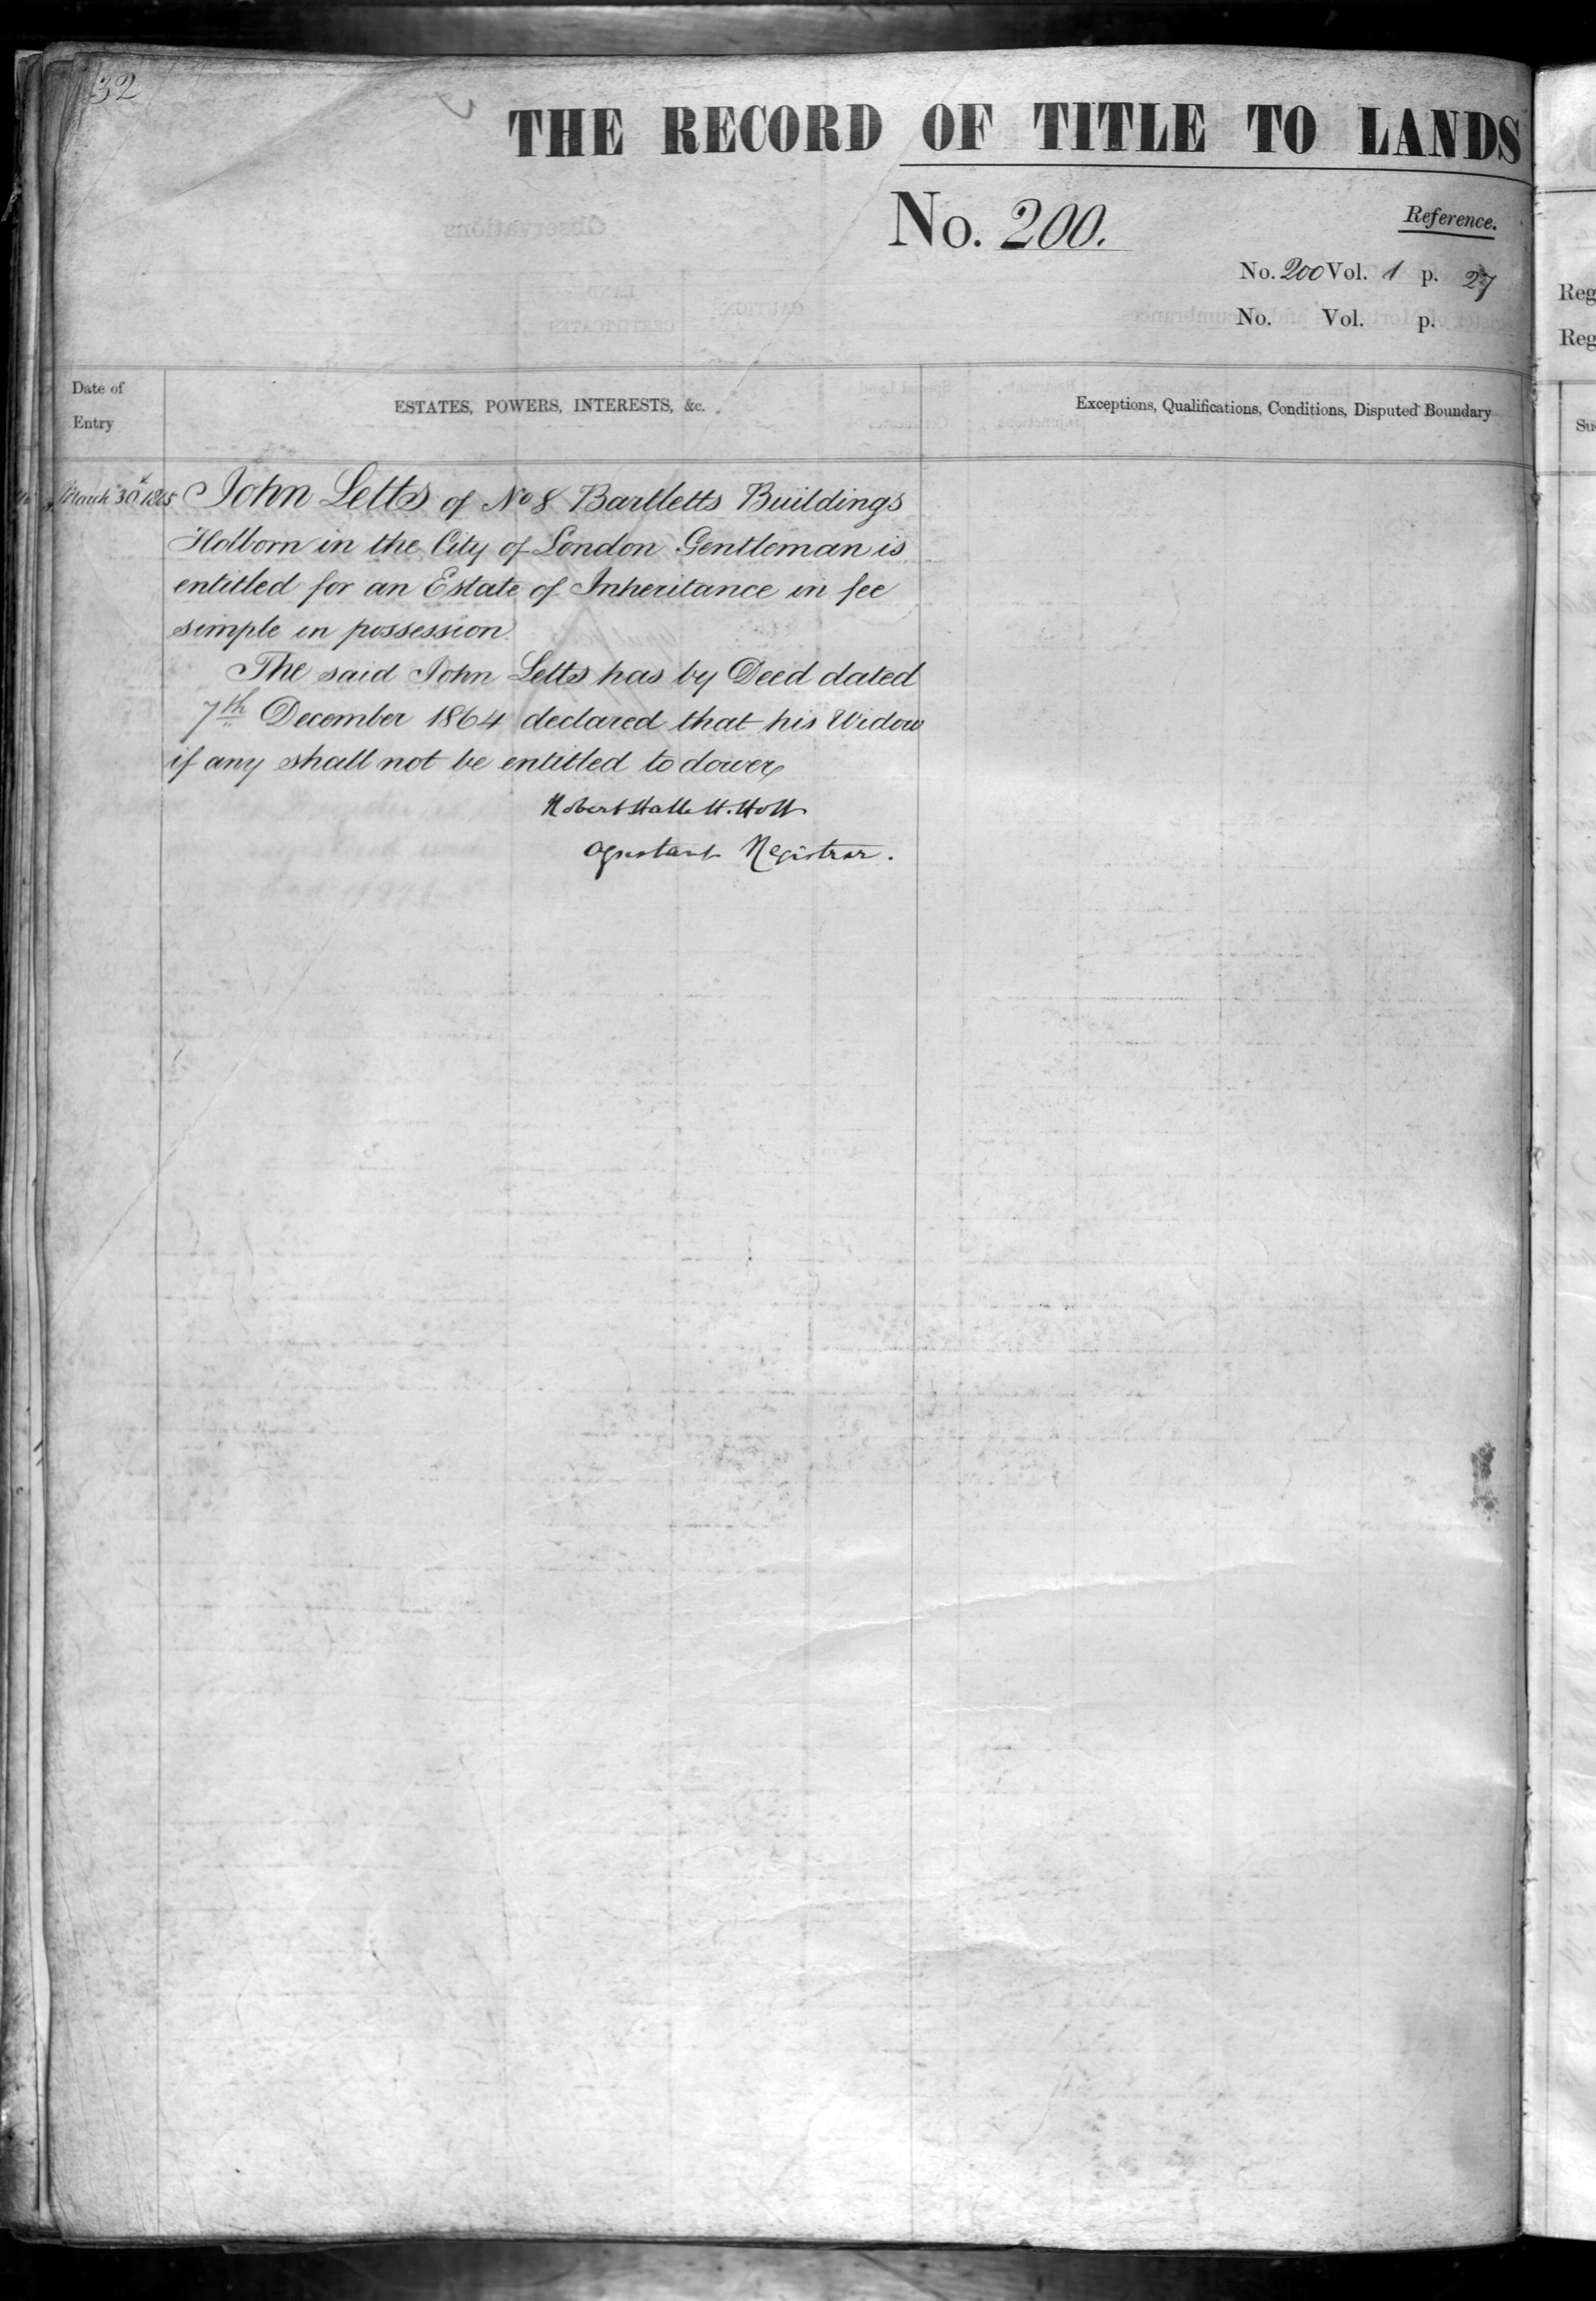 32
THE RECORD OF TITLE TO LANDS
No. 200.
Reference.
No. 200 Vol. 1 p. 27
No. Vol. p.
Date of Entry
ESTATES, POWERS, INTERESTS, &c.
Exceptions, Qualifications, Conditions, Disputed Boundary
March 30th 1865
John Letts of No 8 Bartletts Buildings
Holborn in the City of London Gentleman is
entitled for an Estate of Inheritance in fee
simple in possession.
The said John Letts has by Deed dated
7th December 1864 declared that his Widow
if any shall not be entitled to dower
Robert Hallett Holt
Assistant Registrar.
Reg
Reg
Su